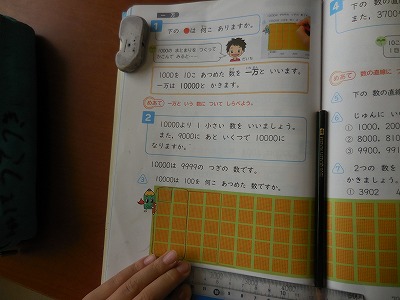 一万
1
下の ●は 何こ ありますか。
1000の まとまりを つくって
1000を 10こ あつめた 数を 一万と いいます。
一万は 10000と かきます。
めあて 一万と いう 数に ついて しらべよう。
2
10000より 1 小さい 数を いいましょう。
また、9000に あと いくつで 10000に
なりますか。
10000は 9999の つぎの 数です。
3 10000は 100を 何こ あつめた 数ですか。
4 下の 数の
また、3700
めあて 数の直線に
5 下の 数の直
6 じゅんに い
① 1000、200
② 8000、810
③ 9900、991
7 2つの 数を
かきましょう。
① 3902 4